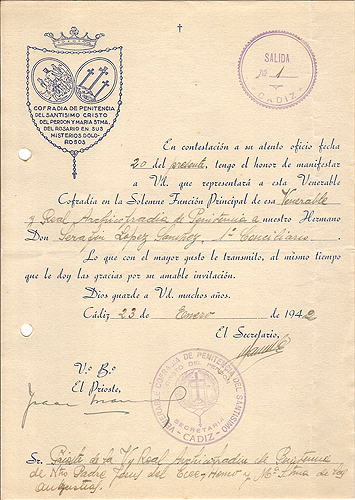 SALIDA
No. 1
CADIZ
COFRADIA DE PENITENCIA
DEL SANTISIMO CRISTO
DEL PERDON Y MARIA STMA.
DEL ROSARIO EN SUS
MISTERIOS DOLO-
ROSOS
En contestación a su atento oficio fecha
20 del presente, tengo el honor de manifestar
a Vd. que representará a esta Venerable
Cofradía en la Solemne Función Principal de esa Venerable
y Real Archicofradia de Penitencia a nuestro Hermano
Don Serafin López Sanchez, 1º Conciliario.
Lo que con el mayor gusto le transmito, al mismo tiempo
que le doy las gracias por su amable invitación.
Dios guarde a Vd. muchos años.
Cádiz 23 de Enero de 1942
El Secretario,
V.º B.º
El Prioste,
VENERABLE COFRADIA DE PENITENCIA DEL SANTISIMO
CRISTO DEL PERDON
SECRETARIA
CADIZ
Sr. Prioste de la V. y Real Archicofradia de Penitencia
de Ntro Padre Jesus del Ecce-Homo y Mª Stma de las
Angustias.